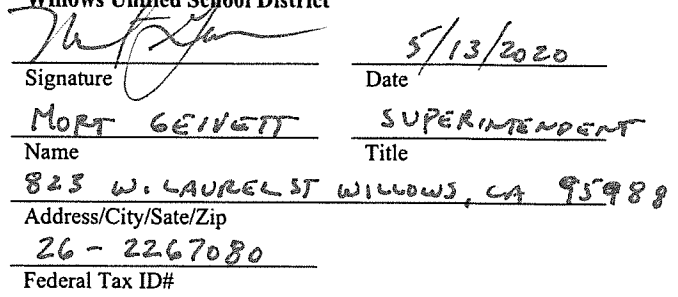 Willows Unified School District
5/13/2020
Signature Date
MORT GEIVETT SUPERINTENDENT
Name Title
823 W. LAUREL ST WILLOWS, CA 95988
Address/City/Sate/Zip
26-2267080
Federal Tax ID#